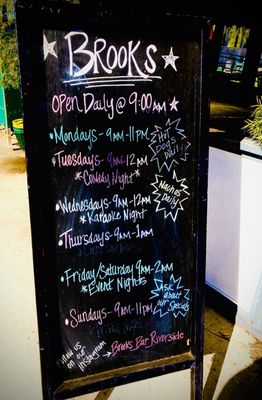 ☆ BROOKS ☆
OPEN Daily @ 9:00 AM ☆
• Mondays - 9AM-11PM
Hot Dogs Daily
• Tuesdays - 9AM-12AM
* Comedy Night *
Nachos Daily
• Wednesdays - 9AM-12AM
* Karaoke Night *
• Thursdays - 9AM-1AM
• Friday/Saturday 9AM-2AM
* Event Nights *
Ask about our Specials
• Sundays - 9AM-11PM
Follow us on our Instagram
→ Brooks Bar Riverside